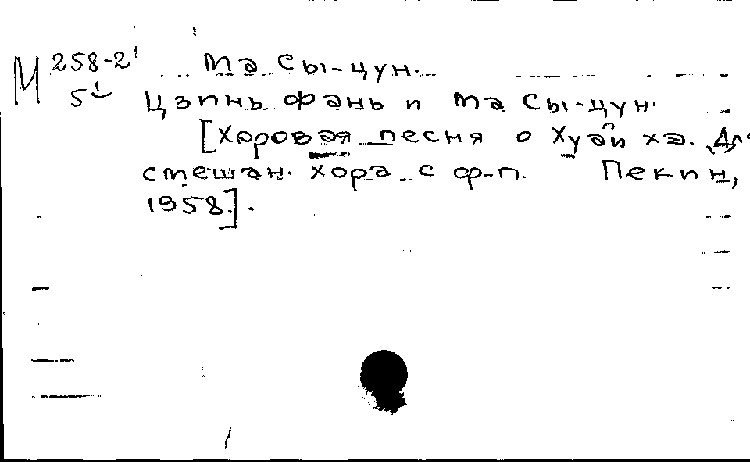 М 258-2
5
Ма Сы-цун.
Цзпинь фань и Ма Сы-цун.
[Хоровая песня о Хуай хэ. Для
смешан. хора с ф-п. Пекин,
1958].